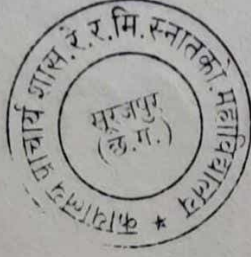 कार्यालय प्राचार्य शास. रे. र. मि. स्नातको. महाविद्यालय *
सूरजपुर
(छ.ग.)